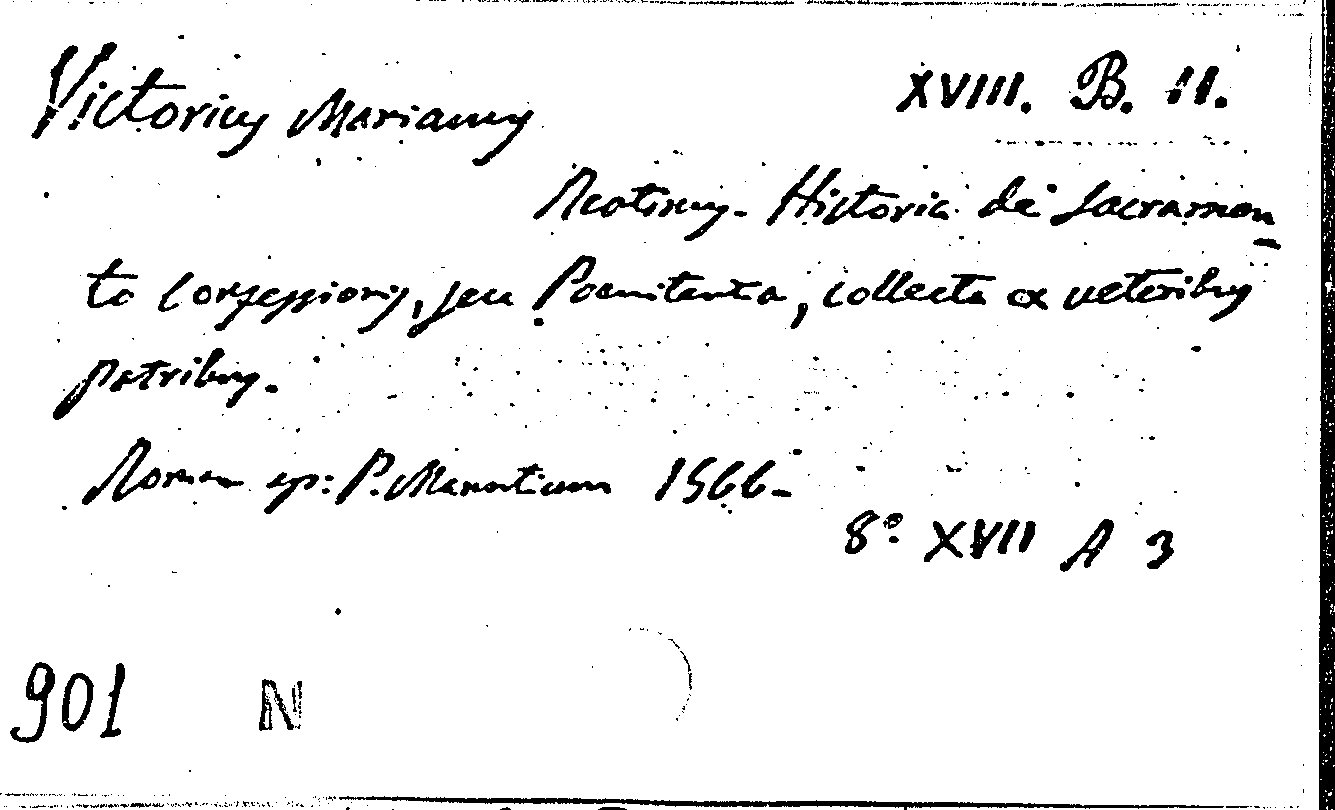 Victorius Marianus XVIII. B. 11.
Reatinus. Historia de Sacramen
to Confessionis, seu Poenitentia, collecta ex veteribus
patribus.
Romae ap: P. Manutium 1566.
8° XVII A 3
901 N